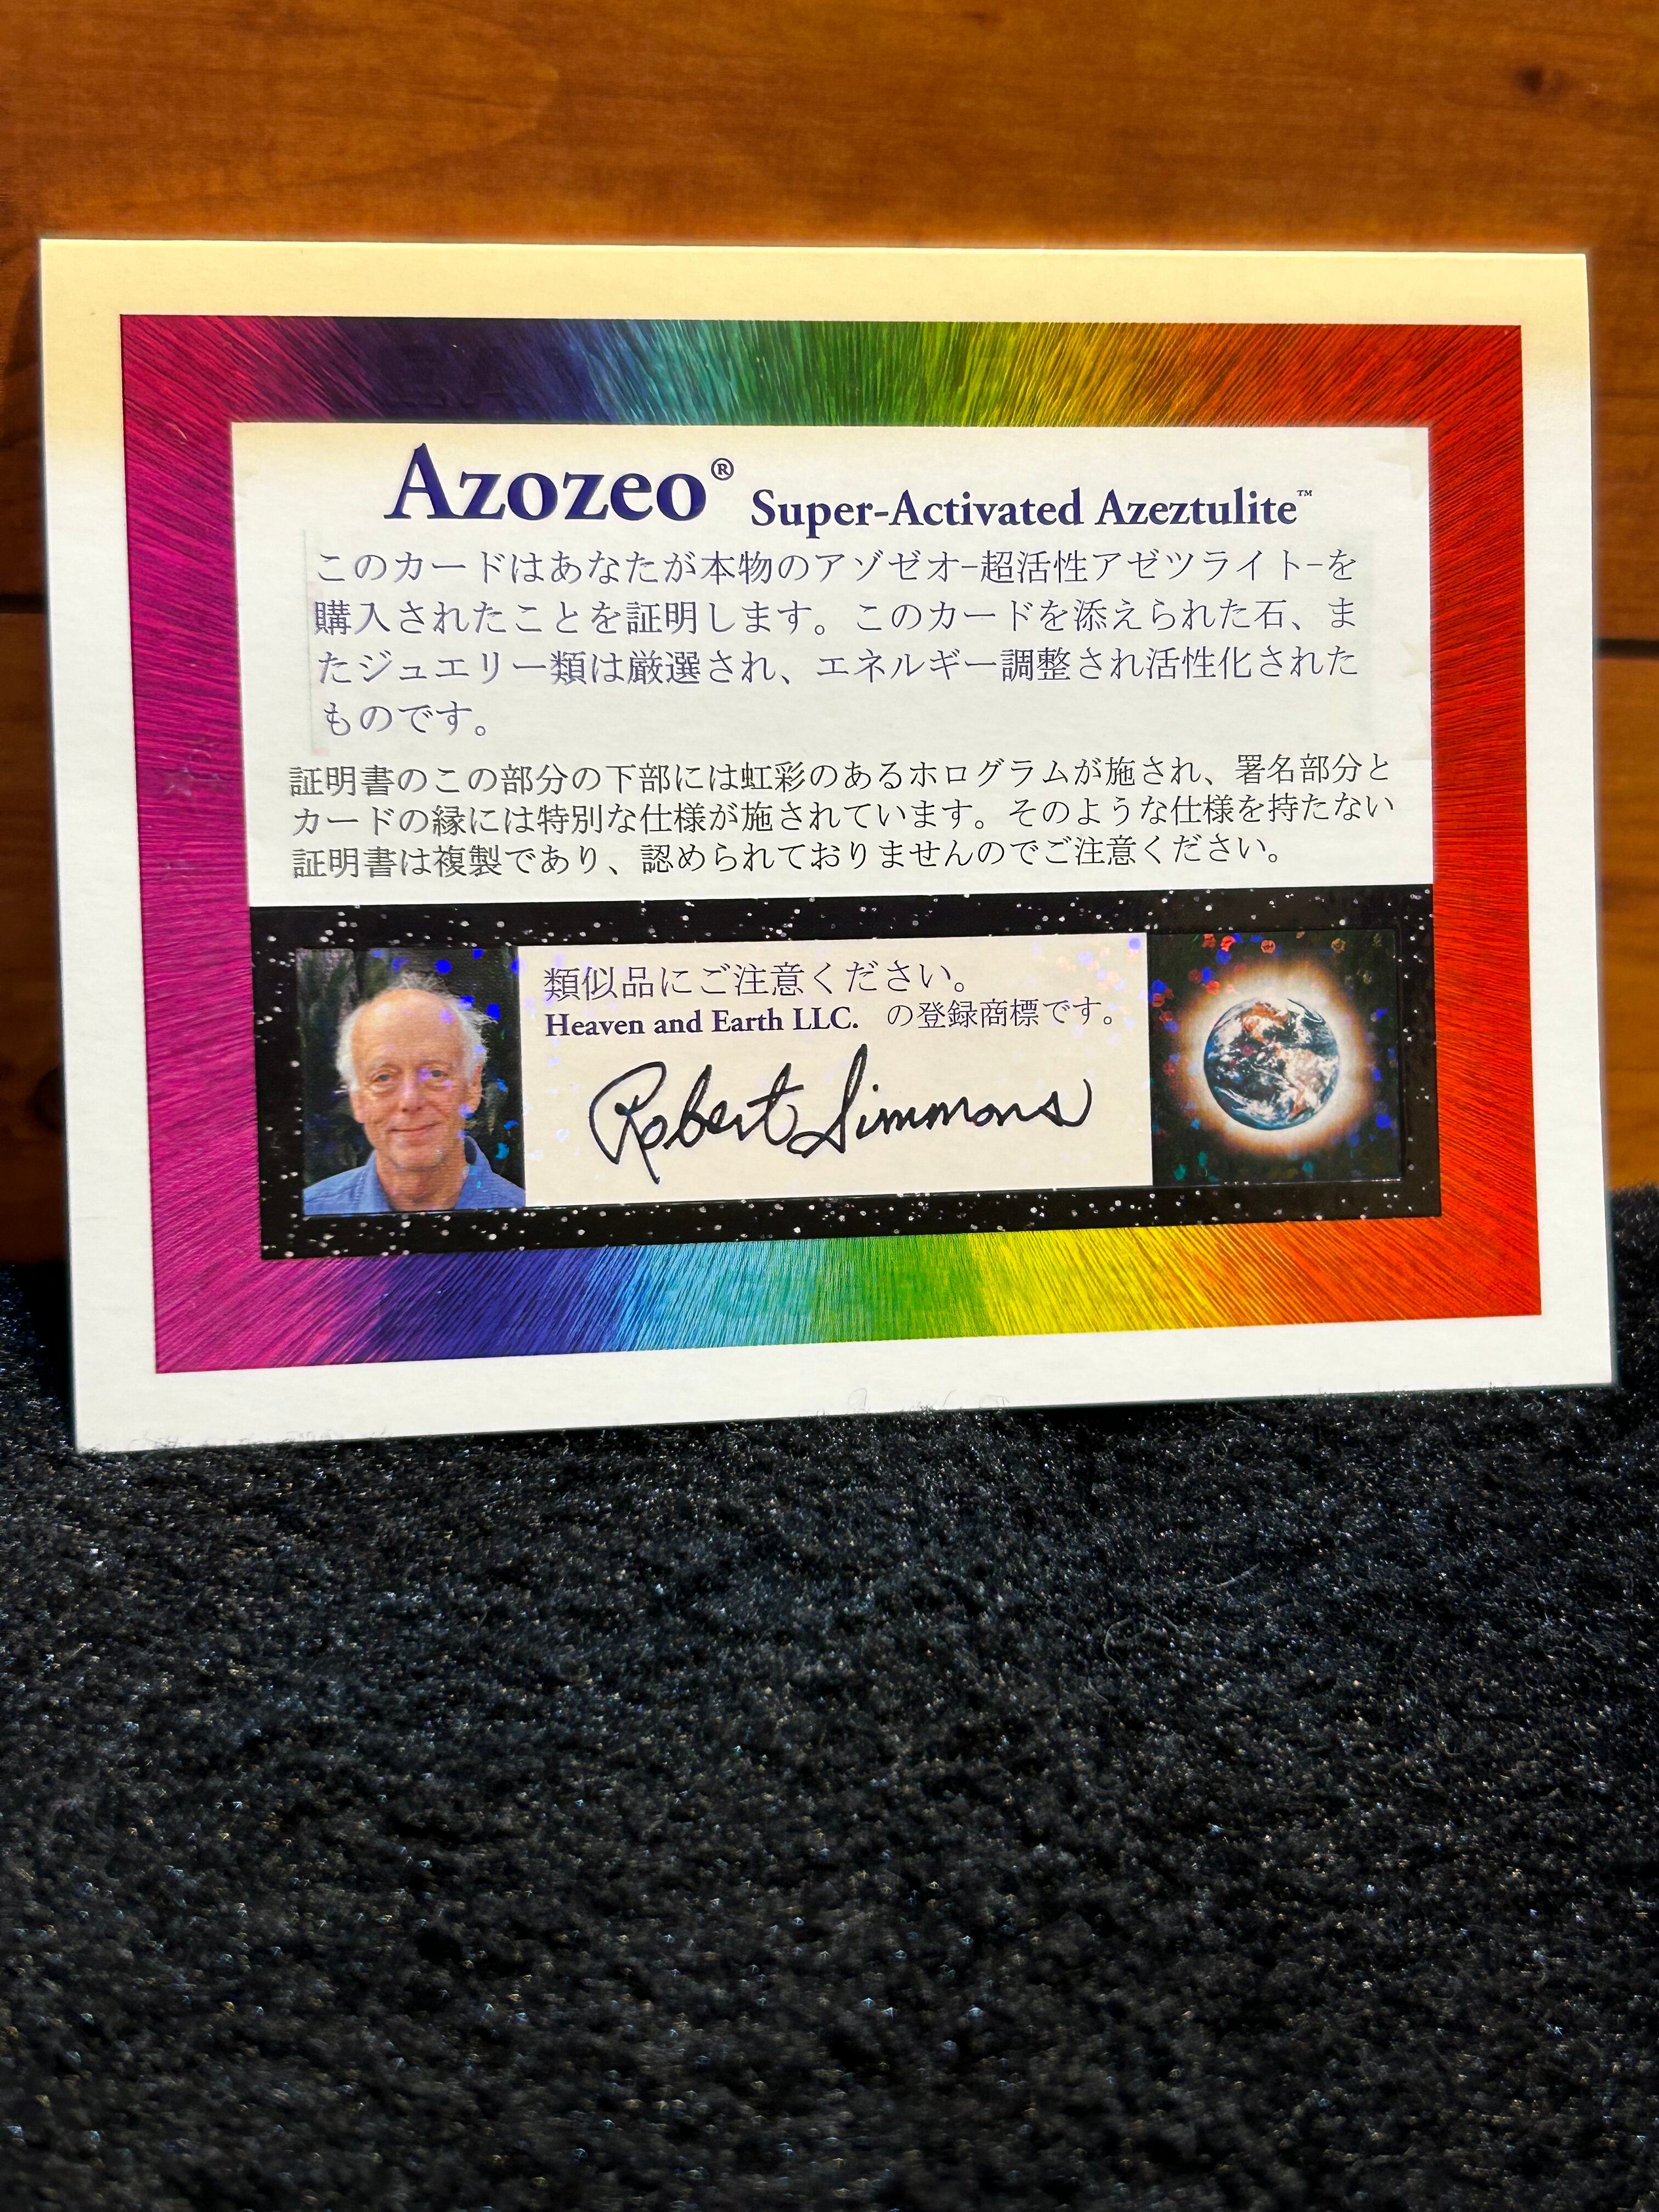 Azozeo® Super-Activated Azeztulite™
このカードはあなたが本物のアゾゼオ-超活性アゼツライト-を
購入されたことを証明します。このカードを添えられた石、ま
たジュエリー類は厳選され、エネルギー調整され活性化された
ものです。
証明書のこの部分の下部には虹彩のあるホログラムが施され、署名部分と
カードの縁には特別な仕様が施されています。そのような仕様を持たない
証明書は複製であり、認められておりませんのでご注意ください。
類似品にご注意ください。
Heaven and Earth LLC. の登録商標です。
Robert Simmons